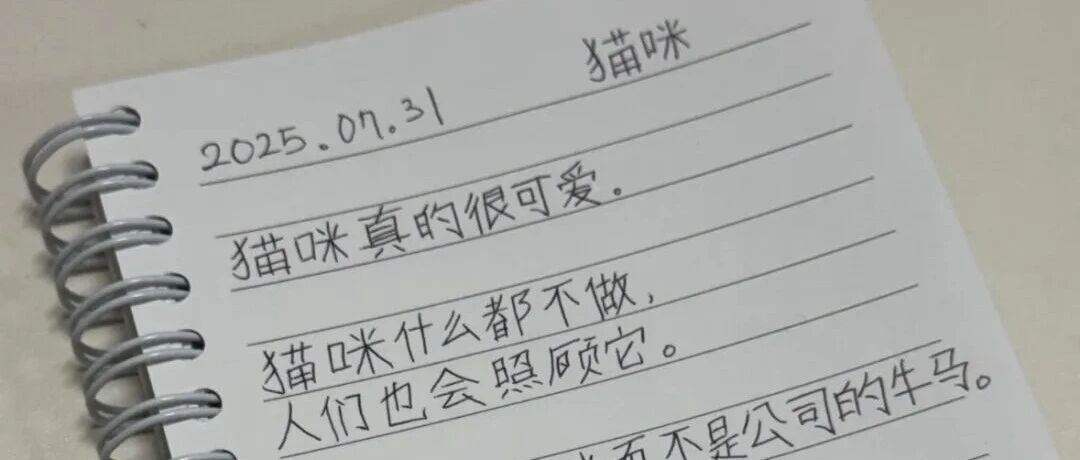 猫咪
2025.07.31
猫咪真的很可爱.
猫咪什么都不做,
人们也会照顾它。
而不是公司的牛马。